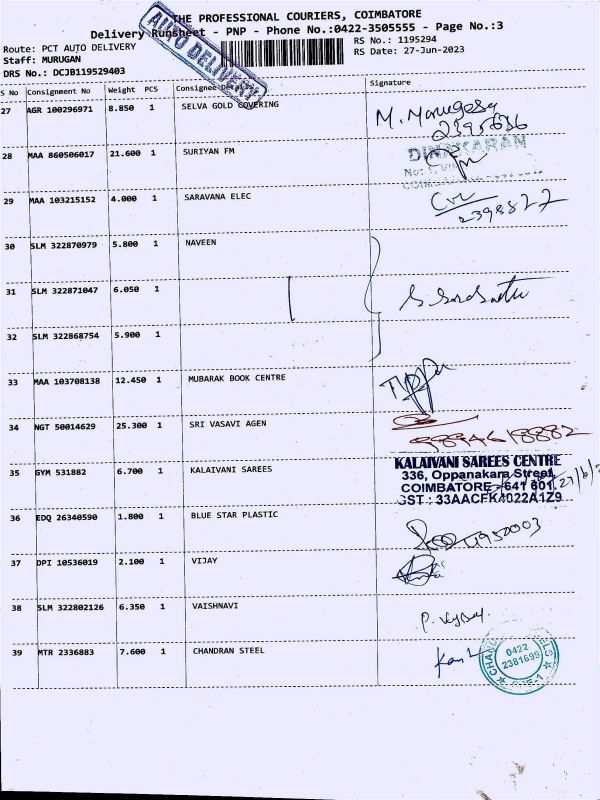 THE PROFESSIONAL COURIERS, COIMBATORE
Delivery Runsheet - PNP - Phone No.:0422-3505555 - Page No.:3
AUTO DELIVERY
Route: PCT AUTO DELIVERY
RS No.: 1195294
Staff: MURUGAN
RS Date: 27-Jun-2023
DRS No.: DCJB119529403
S No Consignment No Weight PCS Consignee Details Signature
27 AGR 100296971 8.850 1 SELVA GOLD COVERING
2395636
28 MAA 860506017 21.600 1 SURIYAN FM
DINAKARAN
29 MAA 103215152 4.000 1 SARAVANA ELEC
2398827
30 SLM 322870979 5.800 1 NAVEEN
31 SLM 322871047 6.050 1
32 SLM 322868754 5.900 1
33 MAA 103708138 12.450 1 MUBARAK BOOK CENTRE
34 NGT 50014629 25.300 1 SRI VASAVI AGEN
9894618882
35 GYM 531882 6.700 1 KALAIVANI SAREES
KALAIVANI SAREES CENTRE
336, Oppanakara Street,
COIMBATORE - 641 001.
GST : 33AACFK4022A1Z9
36 EDQ 26340590 1.800 1 BLUE STAR PLASTIC
37 DPI 10536019 2.100 1 VIJAY
38 SLM 322802126 6.350 1 VAISHNAVI
39 MTR 2336883 7.600 1 CHANDRAN STEEL
0422
2381699